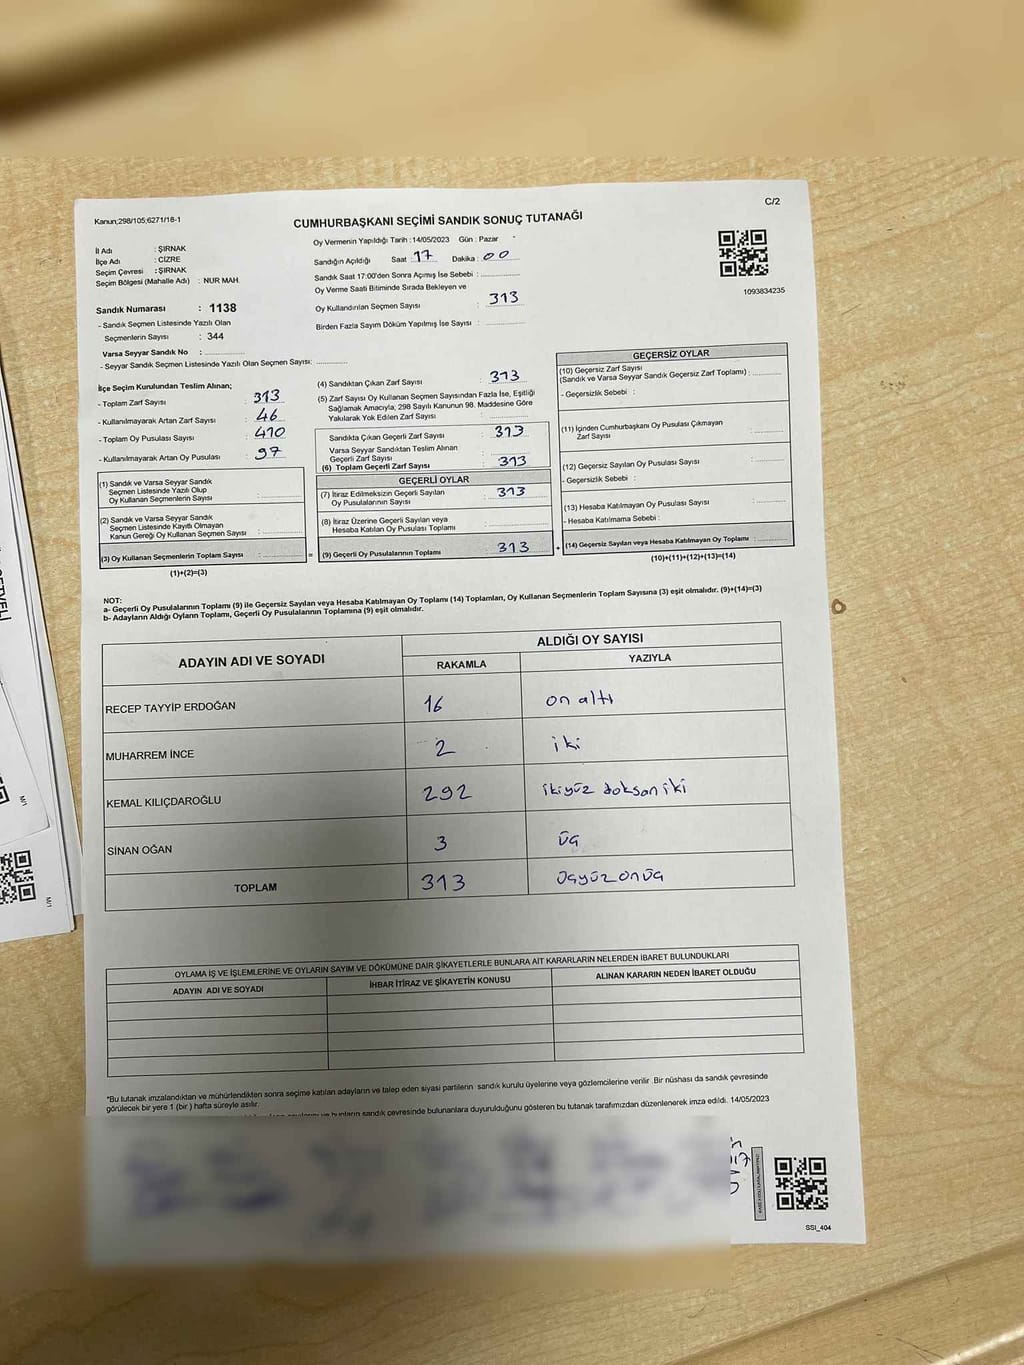 C/2
Kanun;298/105;6271/18-1
CUMHURBAŞKANI SEÇİMİ SANDIK SONUÇ TUTANAĞI
İl Adı : ŞIRNAK
İlçe Adı : CİZRE
Seçim Çevresi : ŞIRNAK
Seçim Bölgesi (Mahalle Adı) : NUR MAH.
Oy Vermenin Yapıldığı Tarih :14/05/2023 Gün : Pazar
Sandığın Açıldığı Saat 17 Dakika : 00
Sandık Saat 17:00'den Sonra Açımış İse Sebebi :
Oy Verme Saati Bitiminde Sırada Bekleyen ve
Oy Kullandırılan Seçmen Sayısı : 313
Birden Fazla Sayım Döküm Yapılmış İse Sayısı :
1093834235
Sandık Numarası : 1138
- Sandık Seçmen Listesinde Yazılı Olan
Seçmenlerin Sayısı : 344
Varsa Seyyar Sandık No :
- Seyyar Sandık Seçmen Listesinde Yazılı Olan Seçmen Sayısı:
İlçe Seçim Kurulundan Teslim Alınan;
- Toplam Zarf Sayısı : 313
- Kullanılmayarak Artan Zarf Sayısı : 46
- Toplam Oy Pusulası Sayısı : 410
- Kullanılmayarak Artan Oy Pusulası : 97
(1) Sandık ve Varsa Seyyar Sandık
Seçmen Listesinde Yazılı Olup
Oy Kullanan Seçmenlerin Sayısı :
(2) Sandık ve Varsa Seyyar Sandık
Seçmen Listesinde Kayıtlı Olmayan
Kanun Gereği Oy Kullanan Seçmen Sayısı :
(3) Oy Kullanan Seçmenlerin Toplam Sayısı : =
(1)+(2)=(3)
(4) Sandıktan Çıkan Zarf Sayısı : 313
(5) Zarf Sayısı Oy Kullanan Seçmen Sayısından Fazla İse, Eşitliği
Sağlamak Amacıyla; 298 Sayılı Kanunun 98. Maddesine Göre
Yakılarak Yok Edilen Zarf Sayısı :
Sandıkta Çıkan Geçerli Zarf Sayısı : 313
Varsa Seyyar Sandıktan Teslim Alınan
Geçerli Zarf Sayısı :
(6) Toplam Geçerli Zarf Sayısı : 313
GEÇERLİ OYLAR
(7) İtiraz Edilmeksizin Geçerli Sayılan
Oy Pusulalarının Sayısı : 313
(8) İtiraz Üzerine Geçerli Sayılan veya
Hesaba Katılan Oy Pusulası Toplamı :
(9) Geçerli Oy Pusulalarının Toplamı : 313 +
GEÇERSİZ OYLAR
(10) Geçersiz Zarf Sayısı
(Sandık ve Varsa Seyyar Sandık Geçersiz Zarf Toplamı) :
- Geçersizlik Sebebi :
(11) İçinden Cumhurbaşkanı Oy Pusulası Çıkmayan
Zarf Sayısı
(12) Geçersiz Sayılan Oy Pusulası Sayısı
- Geçersizlik Sebebi :
(13) Hesaba Katılmayan Oy Pusulası Sayısı
- Hesaba Katılmama Sebebi :
(14) Geçersiz Sayılan veya Hesaba Katılmayan Oy Toplamı :
(10)+(11)+(12)+(13)=(14)
NOT:
a- Geçerli Oy Pusulalarının Toplamı (9) ile Geçersiz Sayılan veya Hesaba Katılmayan Oy Toplamı (14) Toplamları, Oy Kullanan Seçmenlerin Toplam Sayısına (3) eşit olmalıdır. (9)+(14)=(3)
b- Adayların Aldığı Oyların Toplamı, Geçerli Oy Pusulalarının Toplamına (9) eşit olmalıdır.
ADAYIN ADI VE SOYADI
ALDIĞI OY SAYISI
RAKAMLA YAZIYLA
RECEP TAYYİP ERDOĞAN 16 on altı
MUHARREM İNCE 2 iki
KEMAL KILIÇDAROĞLU 292 ikiyüz doksan iki
SİNAN OĞAN 3 üç
TOPLAM 313 üçyüz onüç
OYLAMA İŞ VE İŞLEMLERİNE VE OYLARIN SAYIM VE DÖKÜMÜNE DAİR ŞİKAYETLERLE BUNLARA AİT KARARLARIN NELERDEN İBARET BULUNDUKLARI
ADAYIN ADI VE SOYADI İHBAR İTİRAZ VE ŞİKAYETİN KONUSU ALINAN KARARIN NEDEN İBARET OLDUĞU
*Bu tutanak imzalandıktan ve mühürlendikten sonra seçime katılan adayların ve talep eden siyasi partilerin sandık kurulu üyelerine veya gözlemcilerine verilir .Bir nüshası da sandık çevresinde
görülecek bir yere 1 (bir ) hafta süreyle asılır.
ve bunların sandık çevresinde bulunanlara duyurulduğunu gösteren bu tutanak tarafımızdan düzenlenerek imza edildi. 14/05/2023
SSI_404
M/1
M/1